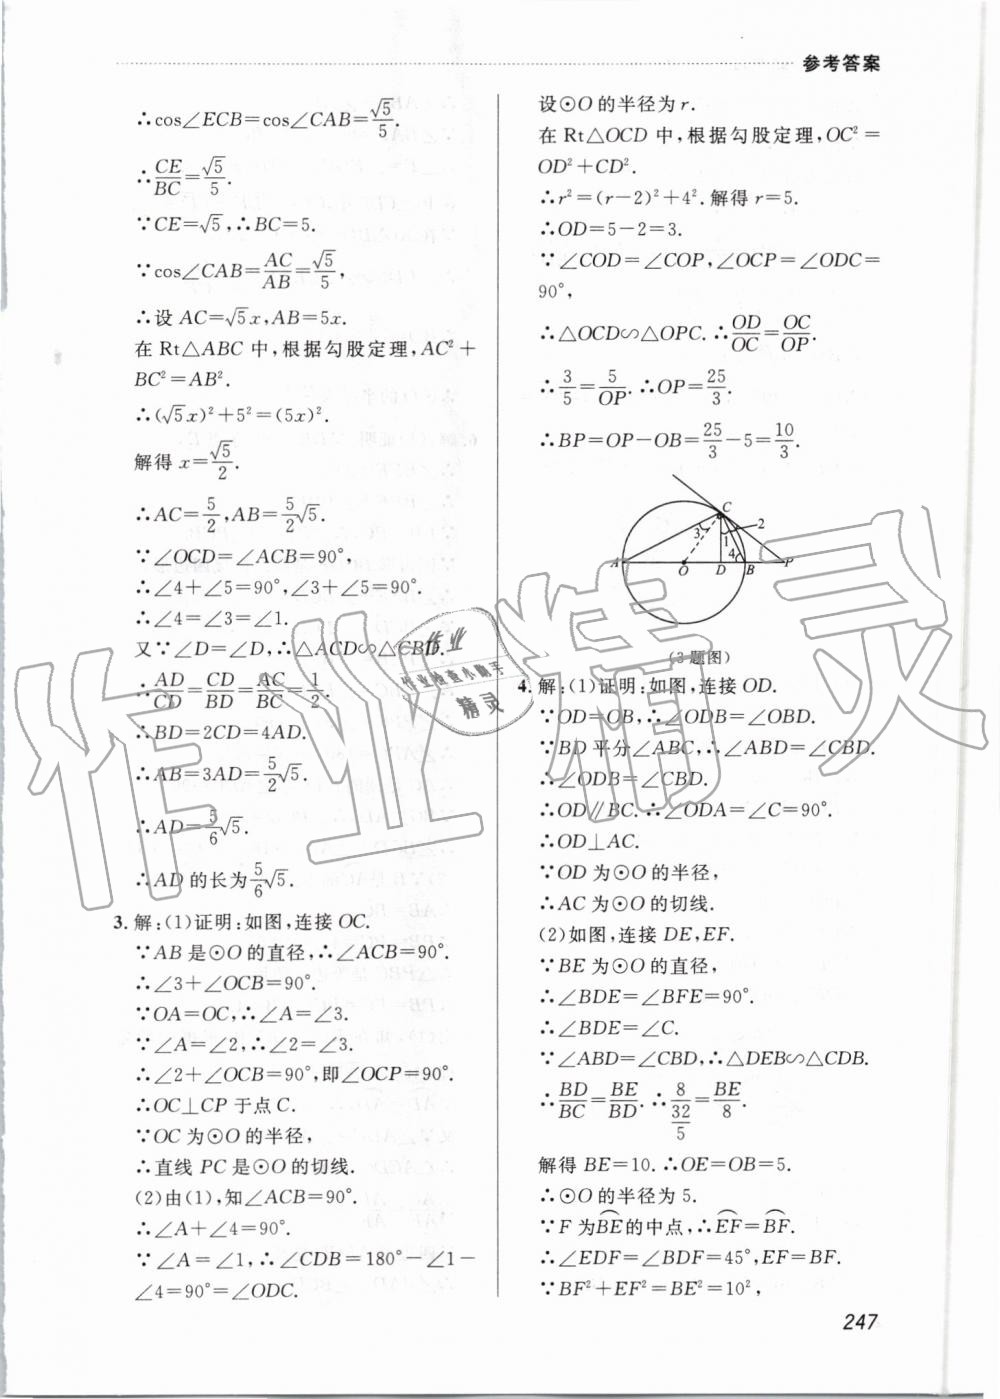 参考答案
∴cos∠ECB=cos∠CAB=√5/5.
∴CE/BC=√5/5.
∵CE=√5,∴BC=5.
∵cos∠CAB=AC/AB=√5/5,
∴设 AC=√5x,AB=5x.
在 Rt△ABC 中,根据勾股定理,AC²+
BC²=AB².
∴(√5x)²+5²=(5x)².
解得 x=√5/2.
∴AC=5/2,AB=5/2√5.
∵∠OCD=∠ACB=90°,
∴∠4+∠5=90°,∠3+∠5=90°.
∴∠4=∠3.
又∵∠D=∠D,∴△ACD∽△CBD.
∴AD/CD=CD/BD=AC/BC=1/2.
∴BD=2CD=4AD.
∴AB=3AD=5/2√5.
∴AD=5/6√5.
∴AD 的长为5/6√5.
3. 解:(1)证明:如图,连接 OC.
∵AB 是⊙O 的直径,∴∠ACB=90°.
∴∠3+∠OCB=90°.
∵OA=OC,∴∠A=∠3.
∵∠A=∠2,∴∠2=∠3.
∴∠2+∠OCB=90°,即∠OCP=90°.
∴OC⊥CP 于点 C.
∵OC 为⊙O 的半径,
∴直线 PC 是⊙O 的切线.
(2)由(1),知∠ACB=90°.
∴∠A+∠4=90°.
∵∠A=∠1,∴∠CDB=180°-∠1-
∠4=90°=∠ODC.
设⊙O 的半径为 r.
在 Rt△OCD 中,根据勾股定理,OC²=
OD²+CD².
∴r²=(r-2)²+4².解得 r=5.
∴OD=5-2=3.
∵∠COD=∠COP,∠OCP=∠ODC=
90°,
∴△OCD∽△OPC.∴OD/OC=OC/OP.
∴3/5=5/OP.∴OP=25/3.
∴BP=OP-OB=25/3-5=10/3.
C
2
3
1
4
A
O
D
B
P
(3题图)
4. 解:(1)证明:如图,连接 OD.
∵OD=OB,∴∠ODB=∠OBD.
∵BD 平分∠ABC,∴∠ABD=∠CBD.
∴∠ODB=∠CBD.
∴OD∥BC.∴∠ODA=∠C=90°.
∴OD⊥AC.
∵OD 为⊙O 的半径,
∴AC 为⊙O 的切线.
(2)如图,连接 DE,EF.
∵BE 为⊙O 的直径,
∴∠BDE=∠BFE=90°.
∴∠BDE=∠C.
∵∠ABD=∠CBD,∴△DEB∽△CDB.
∴BD/BC=BE/BD.∴8/(32/5)=BE/8.
解得 BE=10.∴OE=OB=5.
∴⊙O 的半径为 5.
∵F 为BE⌒的中点,∴EF⌒=BF⌒.
∴∠EDF=∠BDF=45°,EF=BF.
∵BF²+EF²=BE²=10²,
247
作业精灵
作业
作业检查小助手
精灵